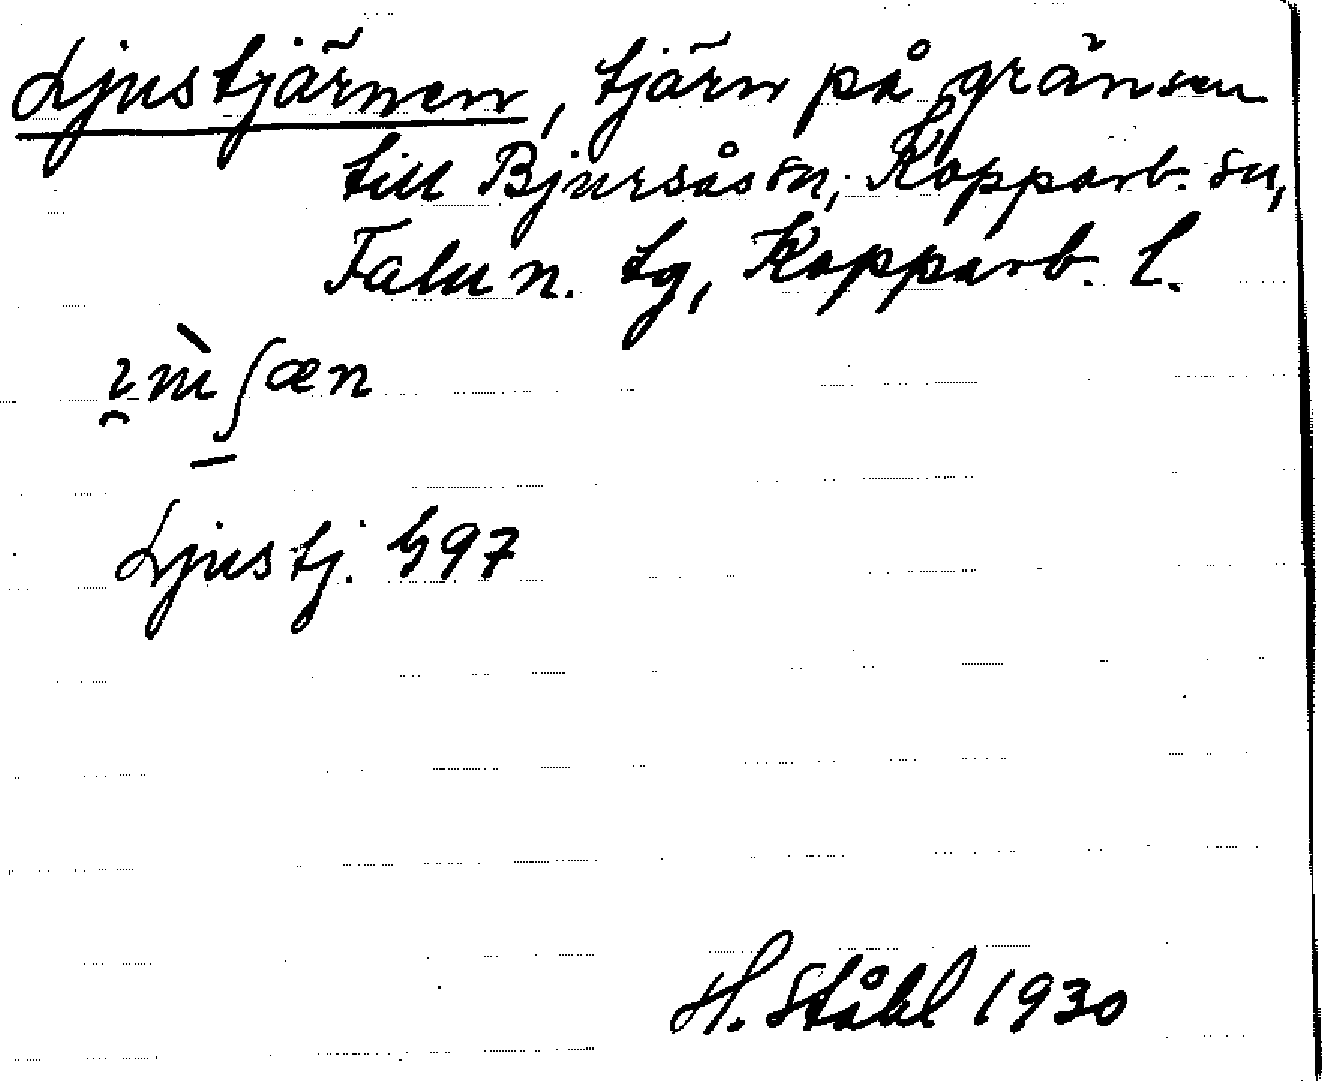 Ljustjärnen, tjärn på gränsen
till Bjursås sn, Kopparb. sn,
Falu n. tg, Kopparb. l.
Ljustj. G97
H. Ståhl 1930